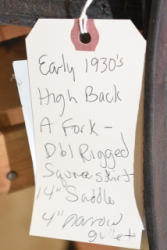 Early 1930's
High Back
A Fork -
Dbl Rigged
Square skirt
14" Saddle
4" narrow
gullet